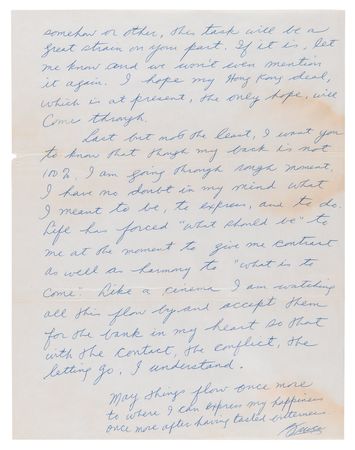 somehow or other, this task will be a
great strain on your part. If it is, let
me know and we won't even mention
it again. I hope my Hong Kong deal,
which is at present, the only hope, will
come through.
Last but not the least, I want you
to know that though my back is not
100%. I am going through rough moment,
I have no doubt in my mind what
I meant to be, to express, and to do.
Life has forced "what should be" to
me at the moment to give me contrast
as well as harmony to "what is to
come". Like a cinema I am watching
all this flow by and accept them
for the bank in my heart so that
with the contact, the conflict, the
letting go, I understand.
May things flow once more
to where I can express my happiness
once more after having tasted bitterness
Bruce